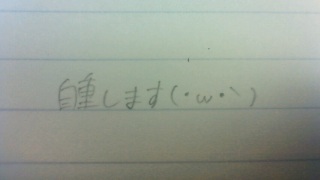 自重します(・ω・`)